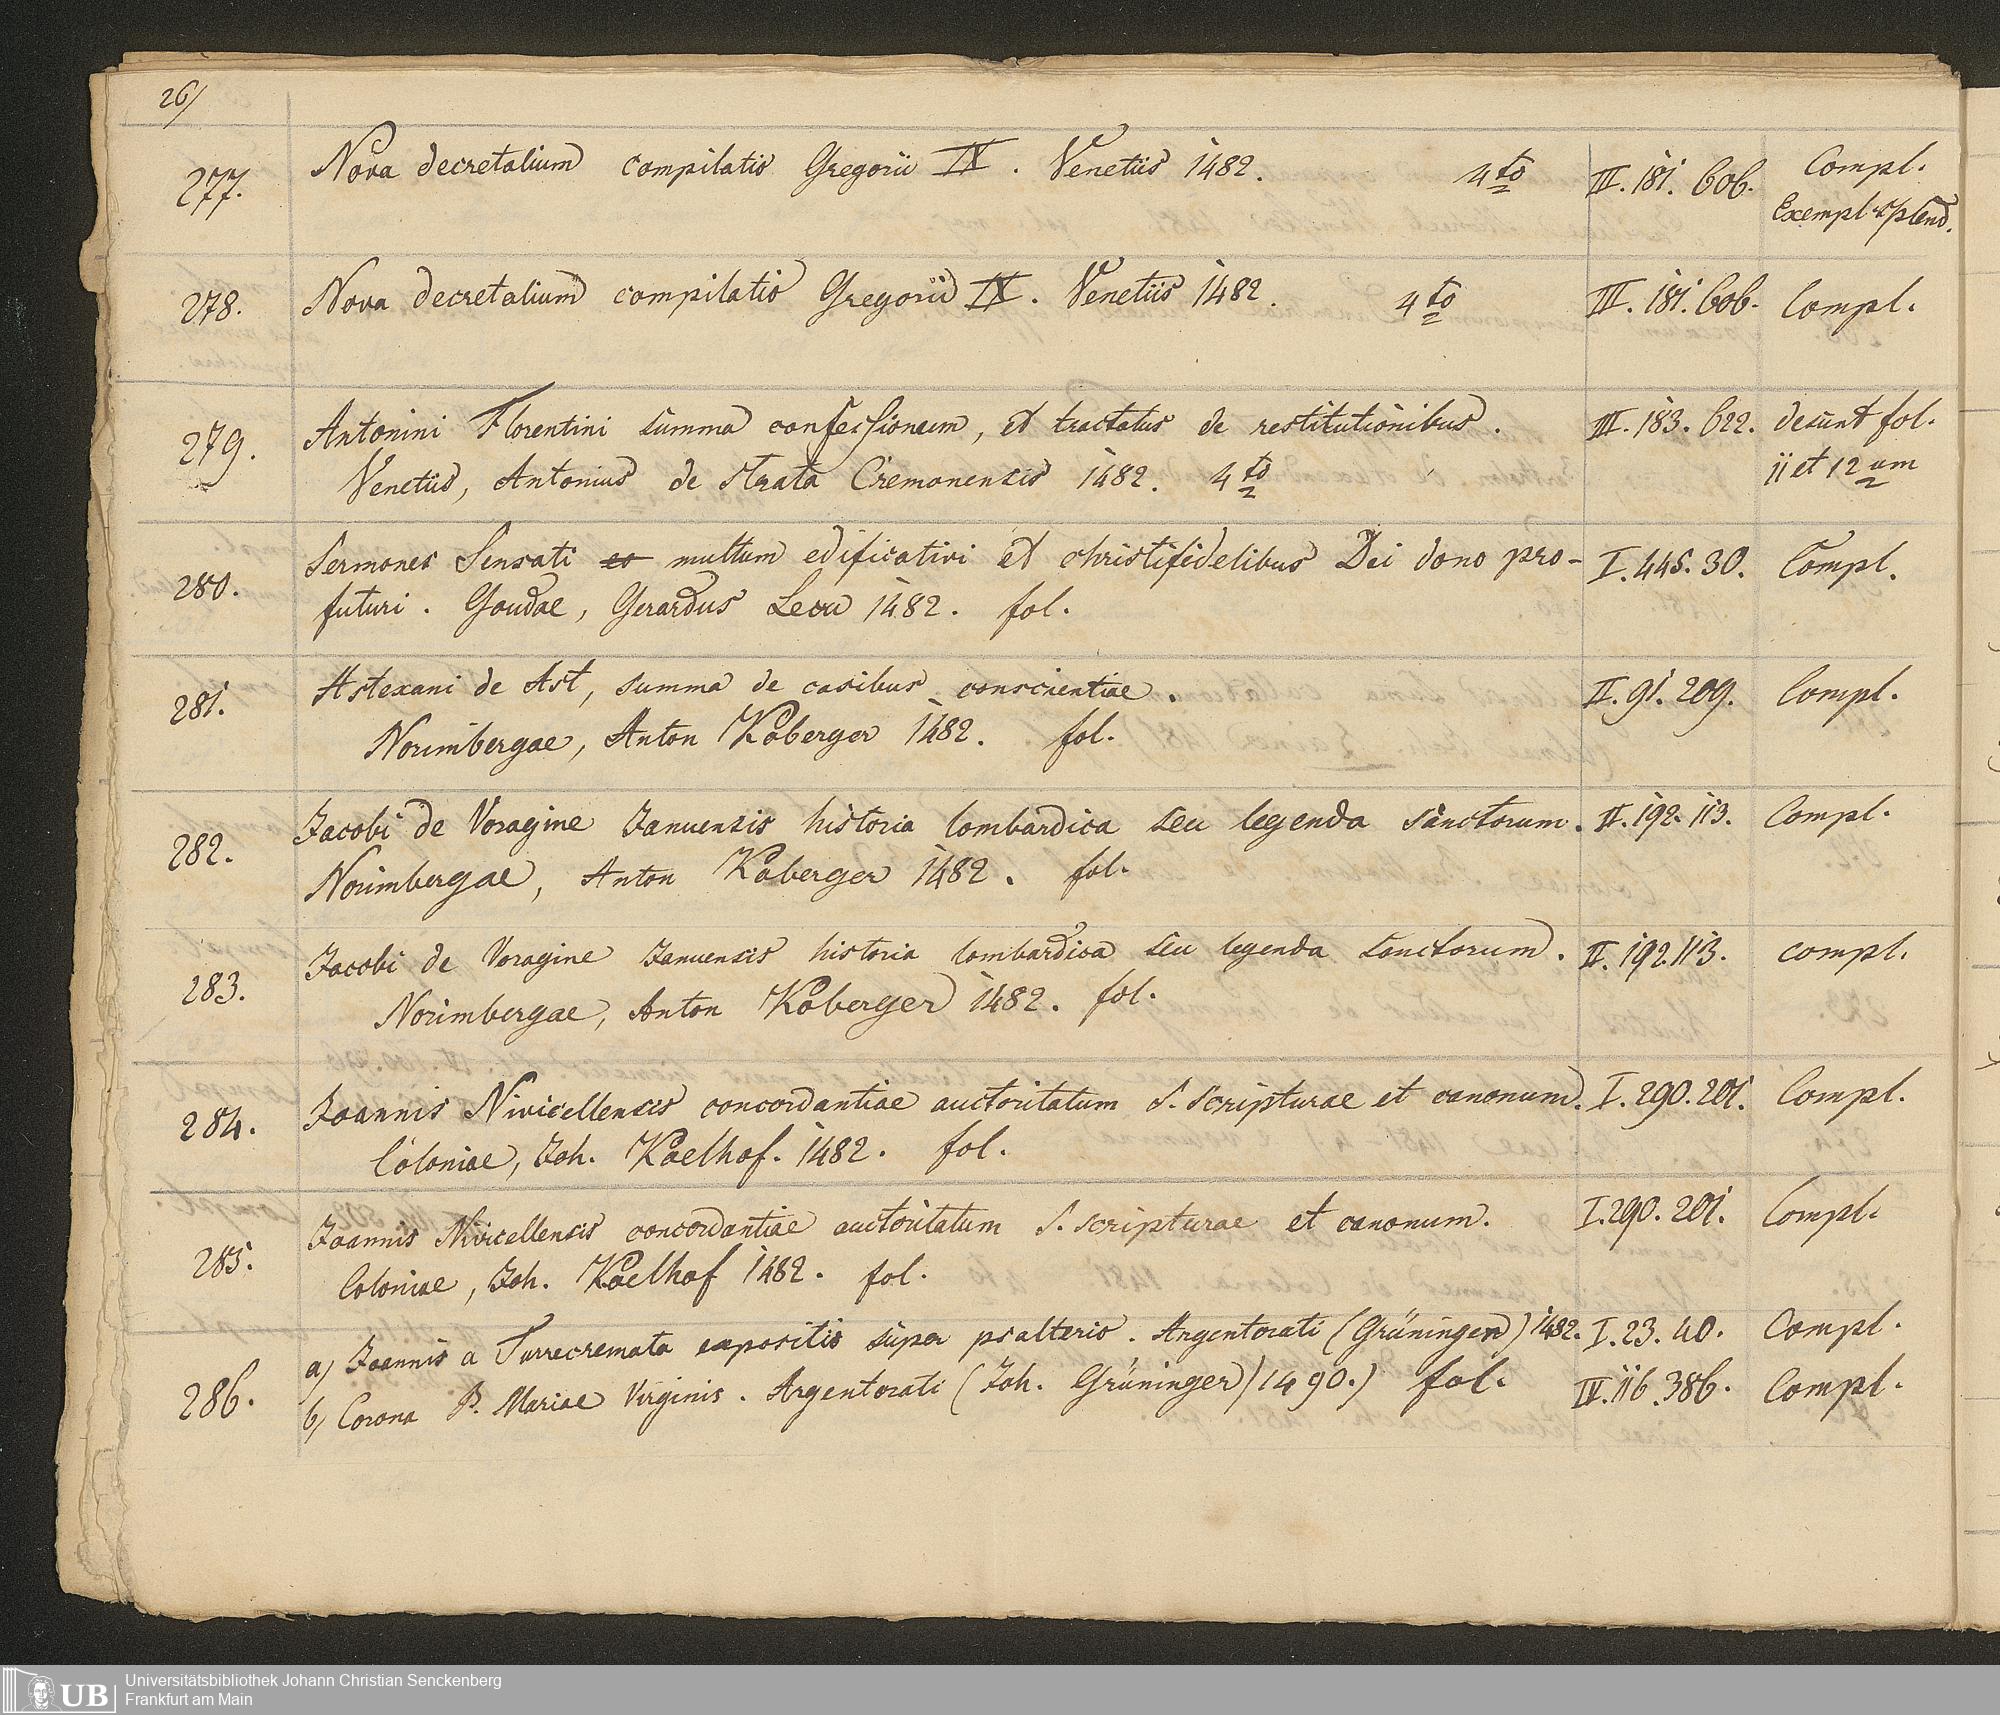 26/
277. Nova decretalium compilatio Gregorii IX. Venetiis 1482. 4to III. 181. 606. Compl.
Exempl. splend.
278. Nova decretalium compilatio Gregorii IX. Venetiis 1482. 4to III. 181. 606. Compl.
279. Antonini Florentini summa confessionum, et tractatus de restitutionibus. III. 183. 622. desunt fol.
Venetiis, Antonius de Strata Cremonensis 1482. 4to 11 et 12um
280. Sermones Sensati multum edificativi et christifidelibus Dei dono pro- I. 445. 30. Compl.
futuri. Goudae, Gerardus Leeu 1482. fol.
281. Astexani de Ast, summa de casibus conscientiae. II. 91. 209. Compl.
Norimbergae, Anton Koberger 1482. fol.
282. Jacobi de Voragine Januensis historia lombardica seu legenda sanctorum. II. 192. 113. Compl.
Norimbergae, Anton Koberger 1482. fol.
283. Jacobi de Voragine Januensis historia lombardica seu legenda sanctorum. II. 192. 113. compl.
Norimbergae, Anton Koberger 1482. fol.
284. Joannis Nivicellensis concordantiae auctoritatum S. Scripturae et canonum. I. 290. 201. Compl.
Coloniae, Joh. Koelhof. 1482. fol.
285. Joannis Nivicellensis concordantiae auctoritatum S. scripturae et canonum. I. 290. 201. Compl.
Coloniae, Joh. Koelhof 1482. fol.
a) Joannis a Turrecremata expositio super psalterio. Argentorati (Grüningen) 1482. I. 23. 40. Compl.
286. b) Corona B. Mariae Virginis. Argentorati (Joh. Grüninger) 1490.) fol. IV. 116. 386. Compl.
Universitätsbibliothek Johann Christian Senckenberg
UB Frankfurt am Main